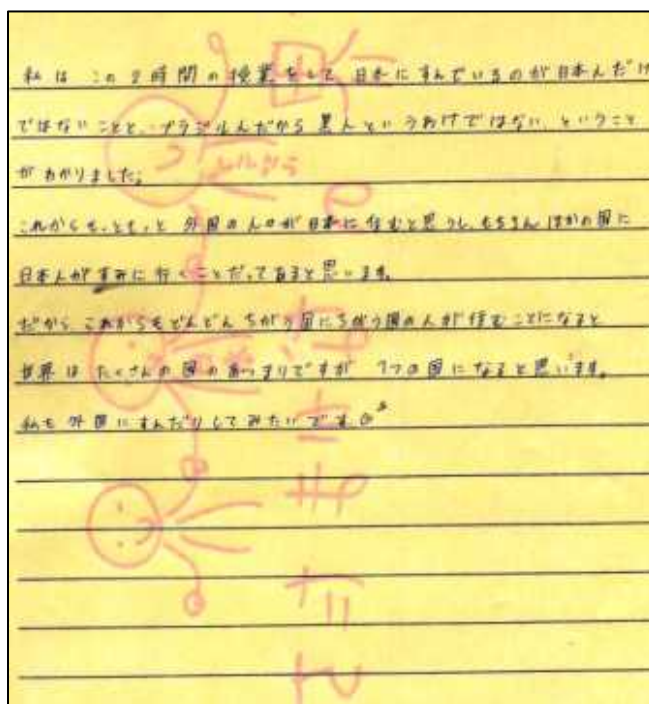 私は この2時間の授業をして 日本にすんでいるのが日本人だけ
ではないことと、ブラジル人だから 黒人というわけではない、ということ
がわかりました。
これからもっともっと 外国の人のが日本に住むと思うし、もちろんほかの国に
日本人がすみに行くことだってあると思います。
だから これからもどんどん ちがう国にちがう国の人が住むことになると
世界は たくさんの国のあつまりですが 1つの国になると思います。
私も外国にすんだりしてみたいです。